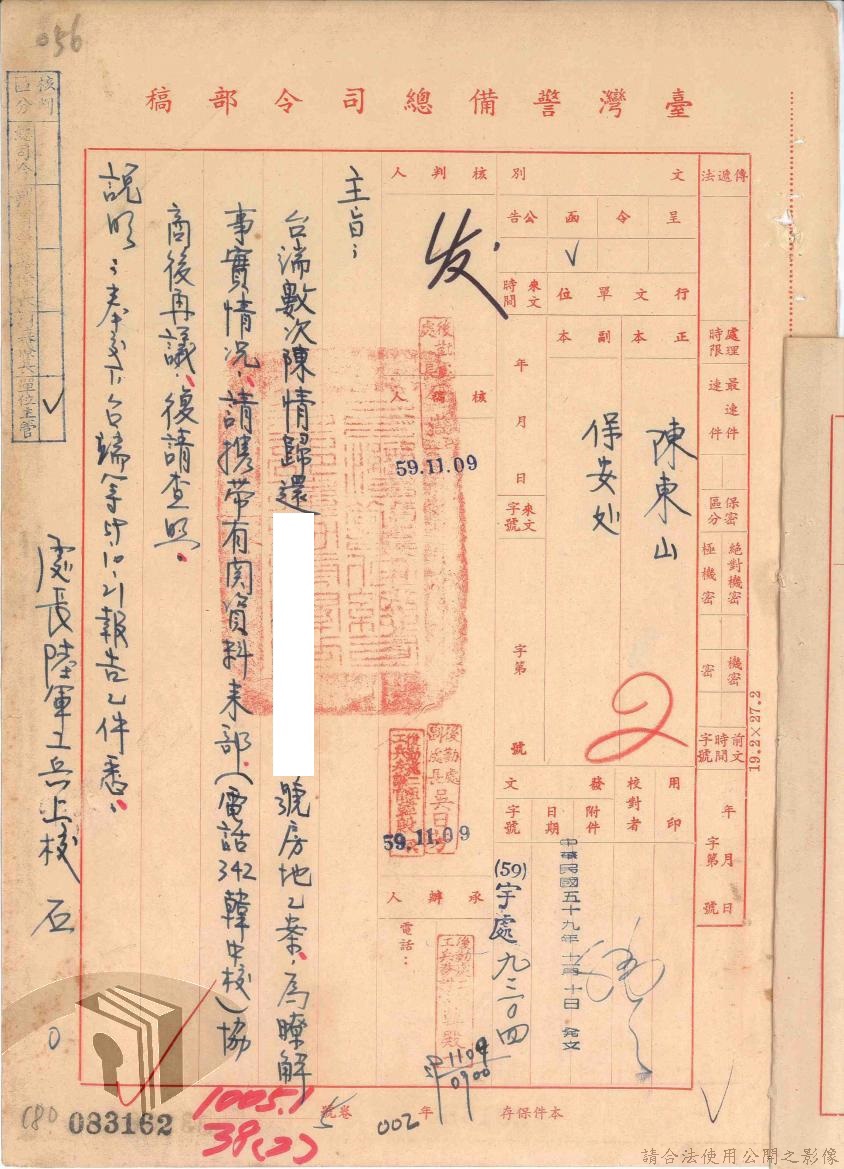 056
核判區分
單位主管
臺灣警備總司令部稿
傳遞法
處理時限
最速件
速件
保密區分
絕對機密
極機密
機密
密
前文時間字號
年月日
字第號
文別
呈
令
函
公告
行文單位
正本
副本
陳東山
保安処
來文時間
年月日
來文字號
字第
號
用印
校對者
發文
附件
日期
字號
中華民國五十九年十一月十日發文
(59)宇處九三〇四
核判人
发
核稿人
59.11.09
59.11.09
承辦人
電話：
1109
0900
主旨：
台端數次陳情歸還
號房地乙案，為瞭解
事實情況，請攜帶有関資料來部（電話342韓中校）協
商後再議，復請查照。
說明：奉交下台端等59.10.21報告乙件悉。
處長陸軍工兵上校 石
2
19.2×27.2
本件保存
年
002
卷號
5
1005.1
39(2)
083162
請合法使用公開之影像